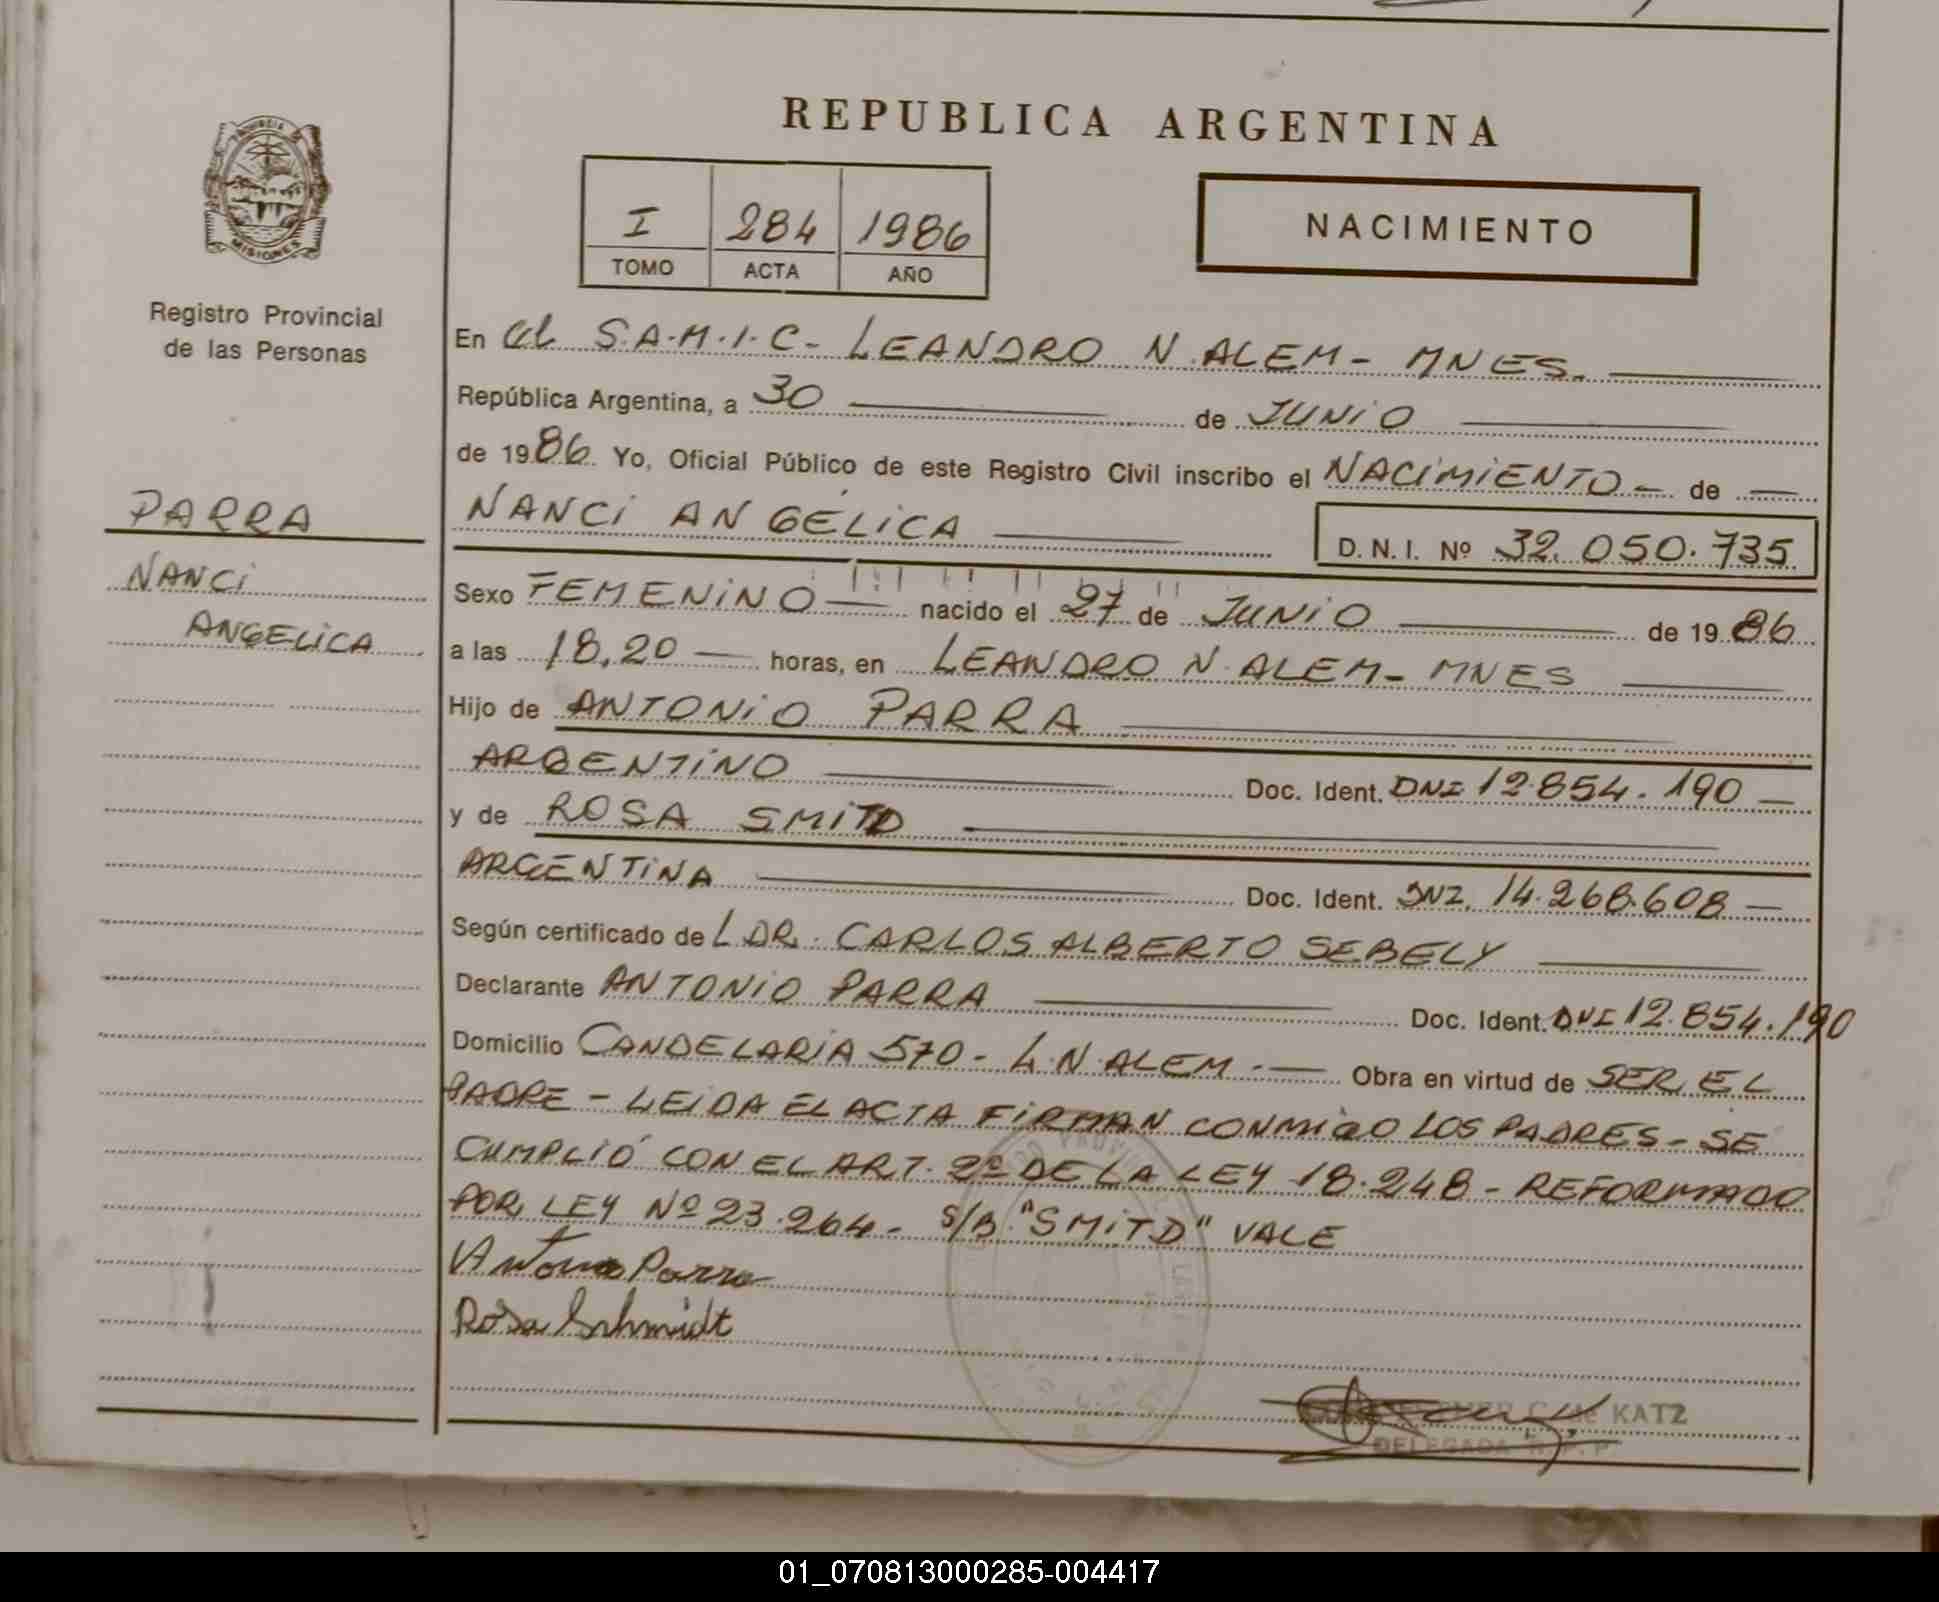 REPUBLICA ARGENTINA
PROVINCIA
MISIONES
I 284 1986
TOMO ACTA AÑO
NACIMIENTO
Registro Provincial
de las Personas
PARRA
NANCI
ANGELICA
En el S.A.M.I.C- LEANDRO N.ALEM- MNES.
República Argentina, a 30 de JUNIO
de 1986. Yo, Oficial Público de este Registro Civil inscribo el NACIMIENTO - de
NANCI ANGELICA D.N.I. Nº 32.050.735
Sexo FEMENINO nacido el 27 de JUNIO de 1986
a las 18,20 horas, en LEANDRO N.ALEM- MNES
Hijo de ANTONIO PARRA
ARGENTINO Doc. Ident. DNI 12.854.190
y de ROSA SMITD
ARGENTINA Doc. Ident. DNI. 14.268.608
Según certificado de L DR. CARLOS ALBERTO SEBELY
Declarante ANTONIO PARRA Doc. Ident. DNI 12.854.190
Domicilio CANDELARIA 570- L.N.ALEM.- Obra en virtud de SER EL
PADRE - LEIDA EL ACTA FIRMAN CONMIGO LOS PADRES- SE
CUMPLIÓ CON EL ART. 2º DE LA LEY 18.248- REFORMADO
POR LEY Nº 23.264- S/B "SMITD" VALE
Antonio Parra
Rosa Schmidt
C. de KATZ
DELEGADA R. P. P.
01_070813000285-004417